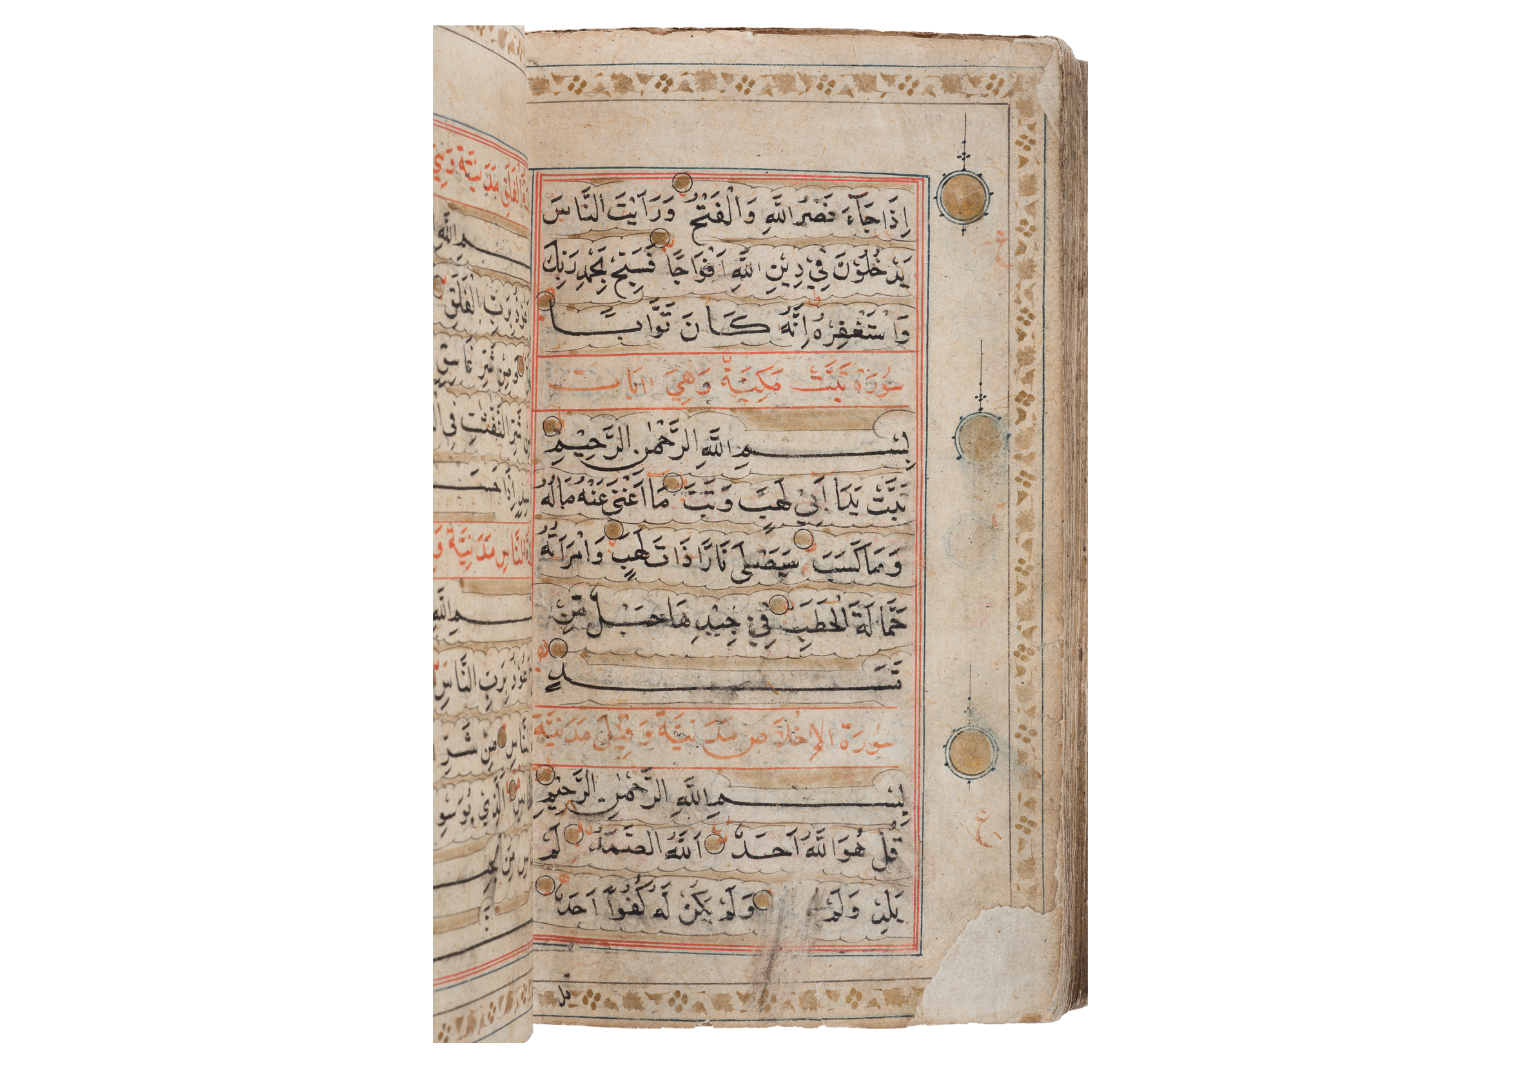 اِذَا جَآءَ نَصْرُ اللّٰهِ وَالْفَتْحُ وَرَاَيْتَ النَّاسَ
يَدْخُلُوْنَ فِيْ دِيْنِ اللّٰهِ اَفْوَاجًا فَسَبِّحْ بِحَمْدِ رَبِّكَ
وَاسْتَغْفِرْهُ اِنَّهُ كَانَ تَوَّابًا
سُوْرَةُ تَبَّتْ مَكِيَّةٌ وَهِيَ
بِسْمِ اللّٰهِ الرَّحْمٰنِ الرَّحِيْمِ
تَبَّتْ يَدَا اَبِيْ لَهَبٍ وَتَبَّ مَا اَغْنٰى عَنْهُ مَالُهُ
وَمَا كَسَبَ سَيَصْلٰى نَارًا ذَاتَ لَهَبٍ وَامْرَاَتُهُ
حَمَّالَةَ الْحَطَبِ فِيْ جِيْدِهَا حَبْلٌ مِّنْ
مَّسَدٍ
سُوْرَةُ الْاِخْلَاصِ مَدَنِيَّةٌ وَقِيْلَ مَدَنِيَّةٌ
بِسْمِ اللّٰهِ الرَّحْمٰنِ الرَّحِيْمِ
قُلْ هُوَ اللّٰهُ اَحَدٌ اَللّٰهُ الصَّمَدُ لَمْ
يَلِدْ وَلَمْ وَلَمْ يَكُنْ لَهُ كُفُوًا اَحَدٌ
قل
مَدَنِيَّةٌ
بِسْمِ اللّٰهِ
بِرَبِّ الْفَلَقِ
وَمِنْ شَرِّ غَاسِقٍ
شَرِّ النَّفّٰثٰتِ فِي
اِذَا حَسَدَ
النَّاسِ مَدَنِيَّةٌ
بِسْمِ اللّٰهِ
اَعُوْذُ بِرَبِّ النَّاسِ
النَّاسِ مِنْ شَرِّ
الَّذِيْ يُوَسْوِسُ
مِنَ